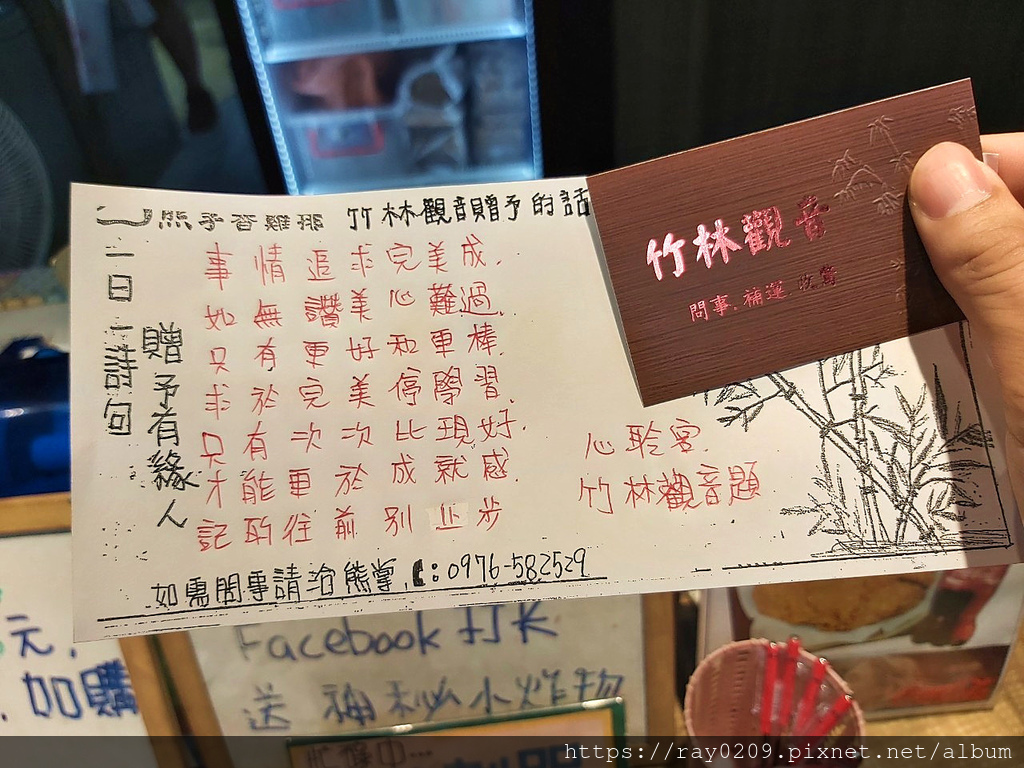 熊手杏雞排 竹林觀音贈予的話
一日一詩句
贈予有緣人
事情追求完美成.
如無讚美心難過.
只有更好和更棒.
求於完美停學習.
只有次次比現好.
才能更於成就感.
記的往前別止步
心聆客.
竹林觀音題
如需問事請洽熊掌. :0976-582529
竹林觀音
問事.補運.收驚
元,
加購
Facebook 打卡
送 神秘小炸物
忙碌中...
https://ray0209.pixnet.net/album